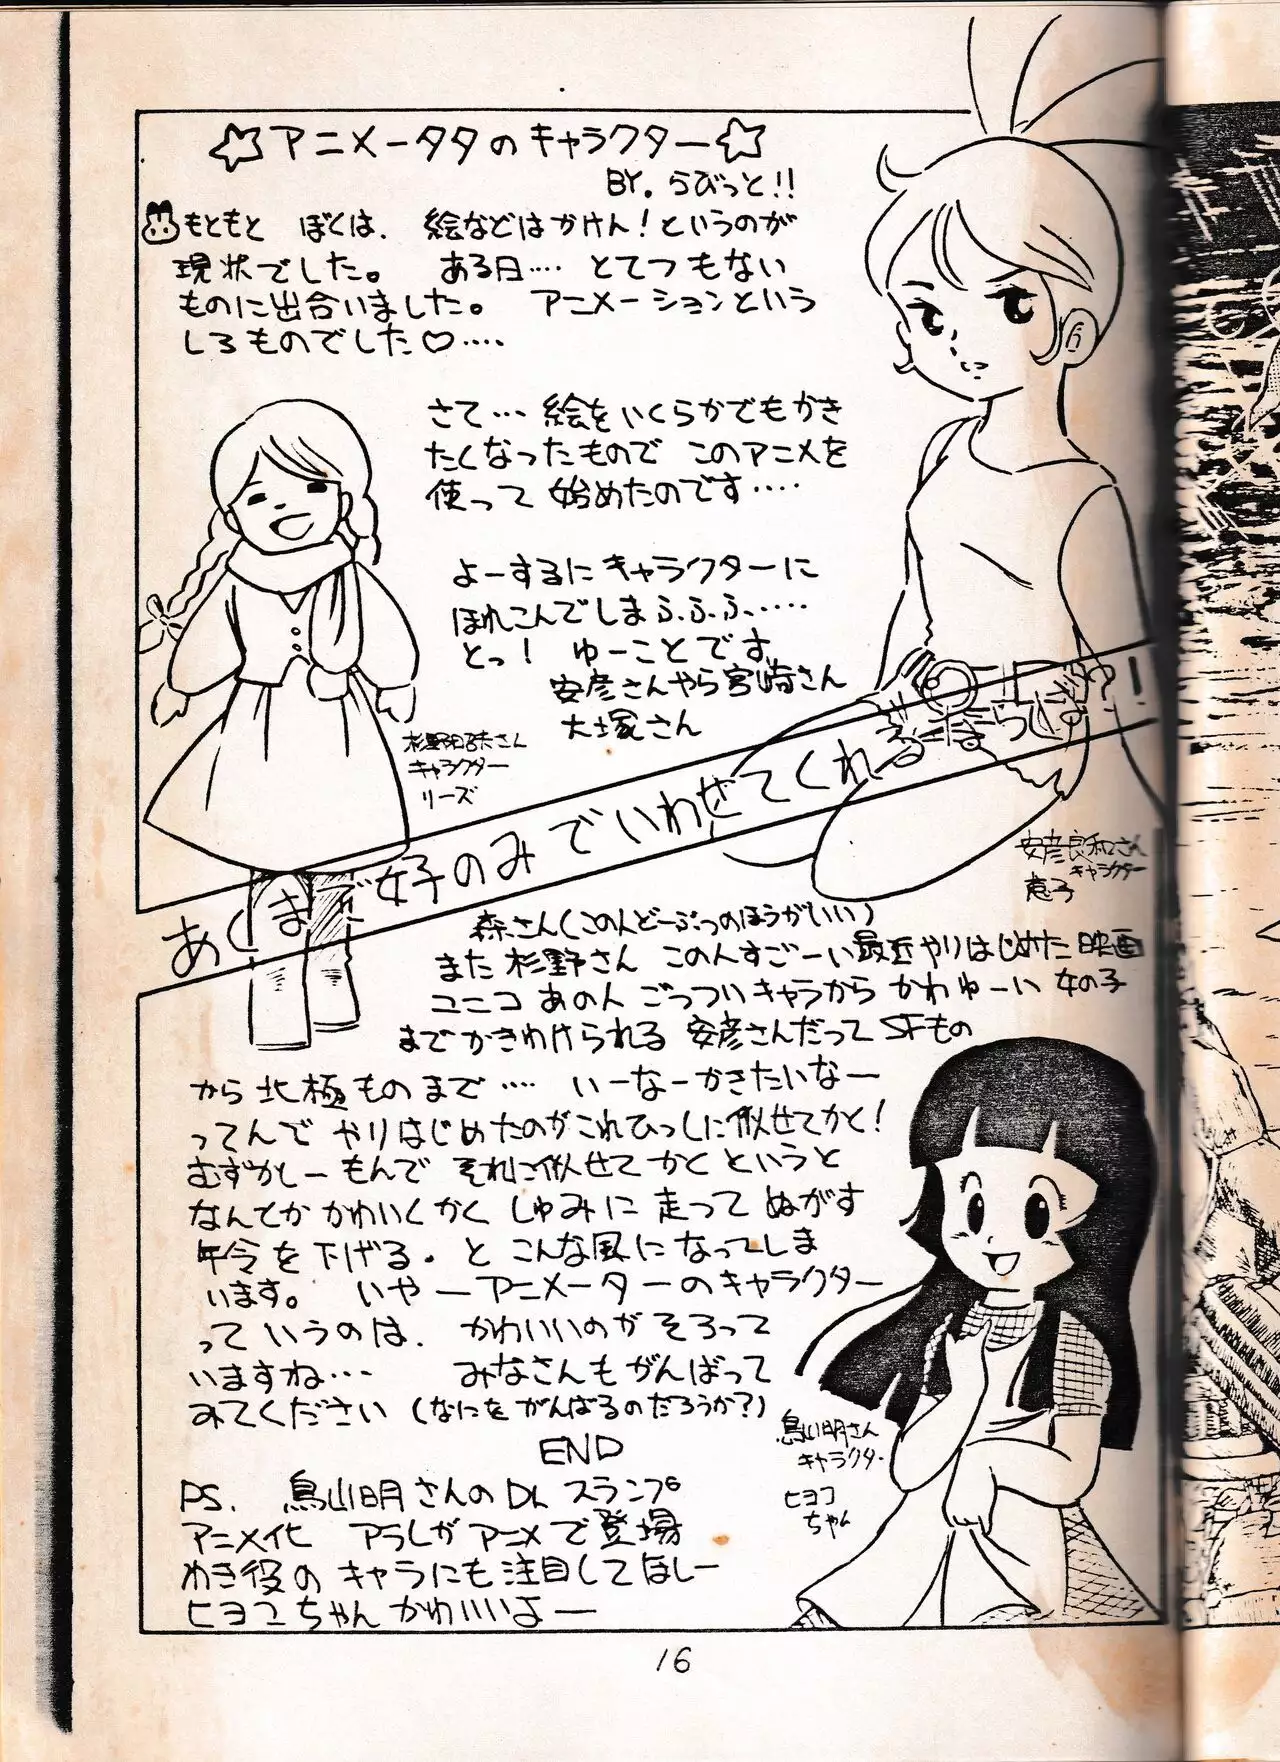 ☆アニメータタのキャラクター☆
BY. らびっと!!
もともと ぼくは、絵などはかけん!というのが
現状でした。 ある日‥‥とてつもない
ものに出合いました。 アニメーションという
しろものでした♡‥‥
さて‥‥絵をいくらかでもかき
たくなったもので このアニメを
使って始めたのです‥‥
よーするにキャラクターに
ほれこんでしまふふふ‥‥‥
とっ! ゆーことです
安彦さんやら宮崎さん
大塚さん
杉野昭夫さん
キャラクター
リーズ
あくまで好のみでいわせてくれる
安彦良和さん
キャラクター
恵子
森さん(このんどーぶつのほうがいい)
また杉野さん この人すごーい最近やりはじめた映画
ユニコ あの人 ごっついキャラから かわゆーい 女の子
までかきわけられる 安彦さんだって SFもの
から北極ものまで‥‥ いーなーかきたいなー
ってんで やりはじめたのがこれひっしに似せてかと!
むずかしーもんで それに似せてかくというと
なんてか かわいくかく しゅみに走って ぬがす
年令を下げる。とこんな風になってしま
います。 いやーアニメーターのキャラクター
っていうのは、かわいいのがそろって
いますね‥‥ みなさんもがんばって
みてください(なにをがんばるのだろうか?)
END
PS. 鳥山明さんのDr.スランプ
アニメ化 アラレがアニメで登場
わき役のキャラにも注目してほしー
ヒヨコちゃんかわいいよー
鳥山明さん
キャラクター
ヒヨコ
ちゃん
16